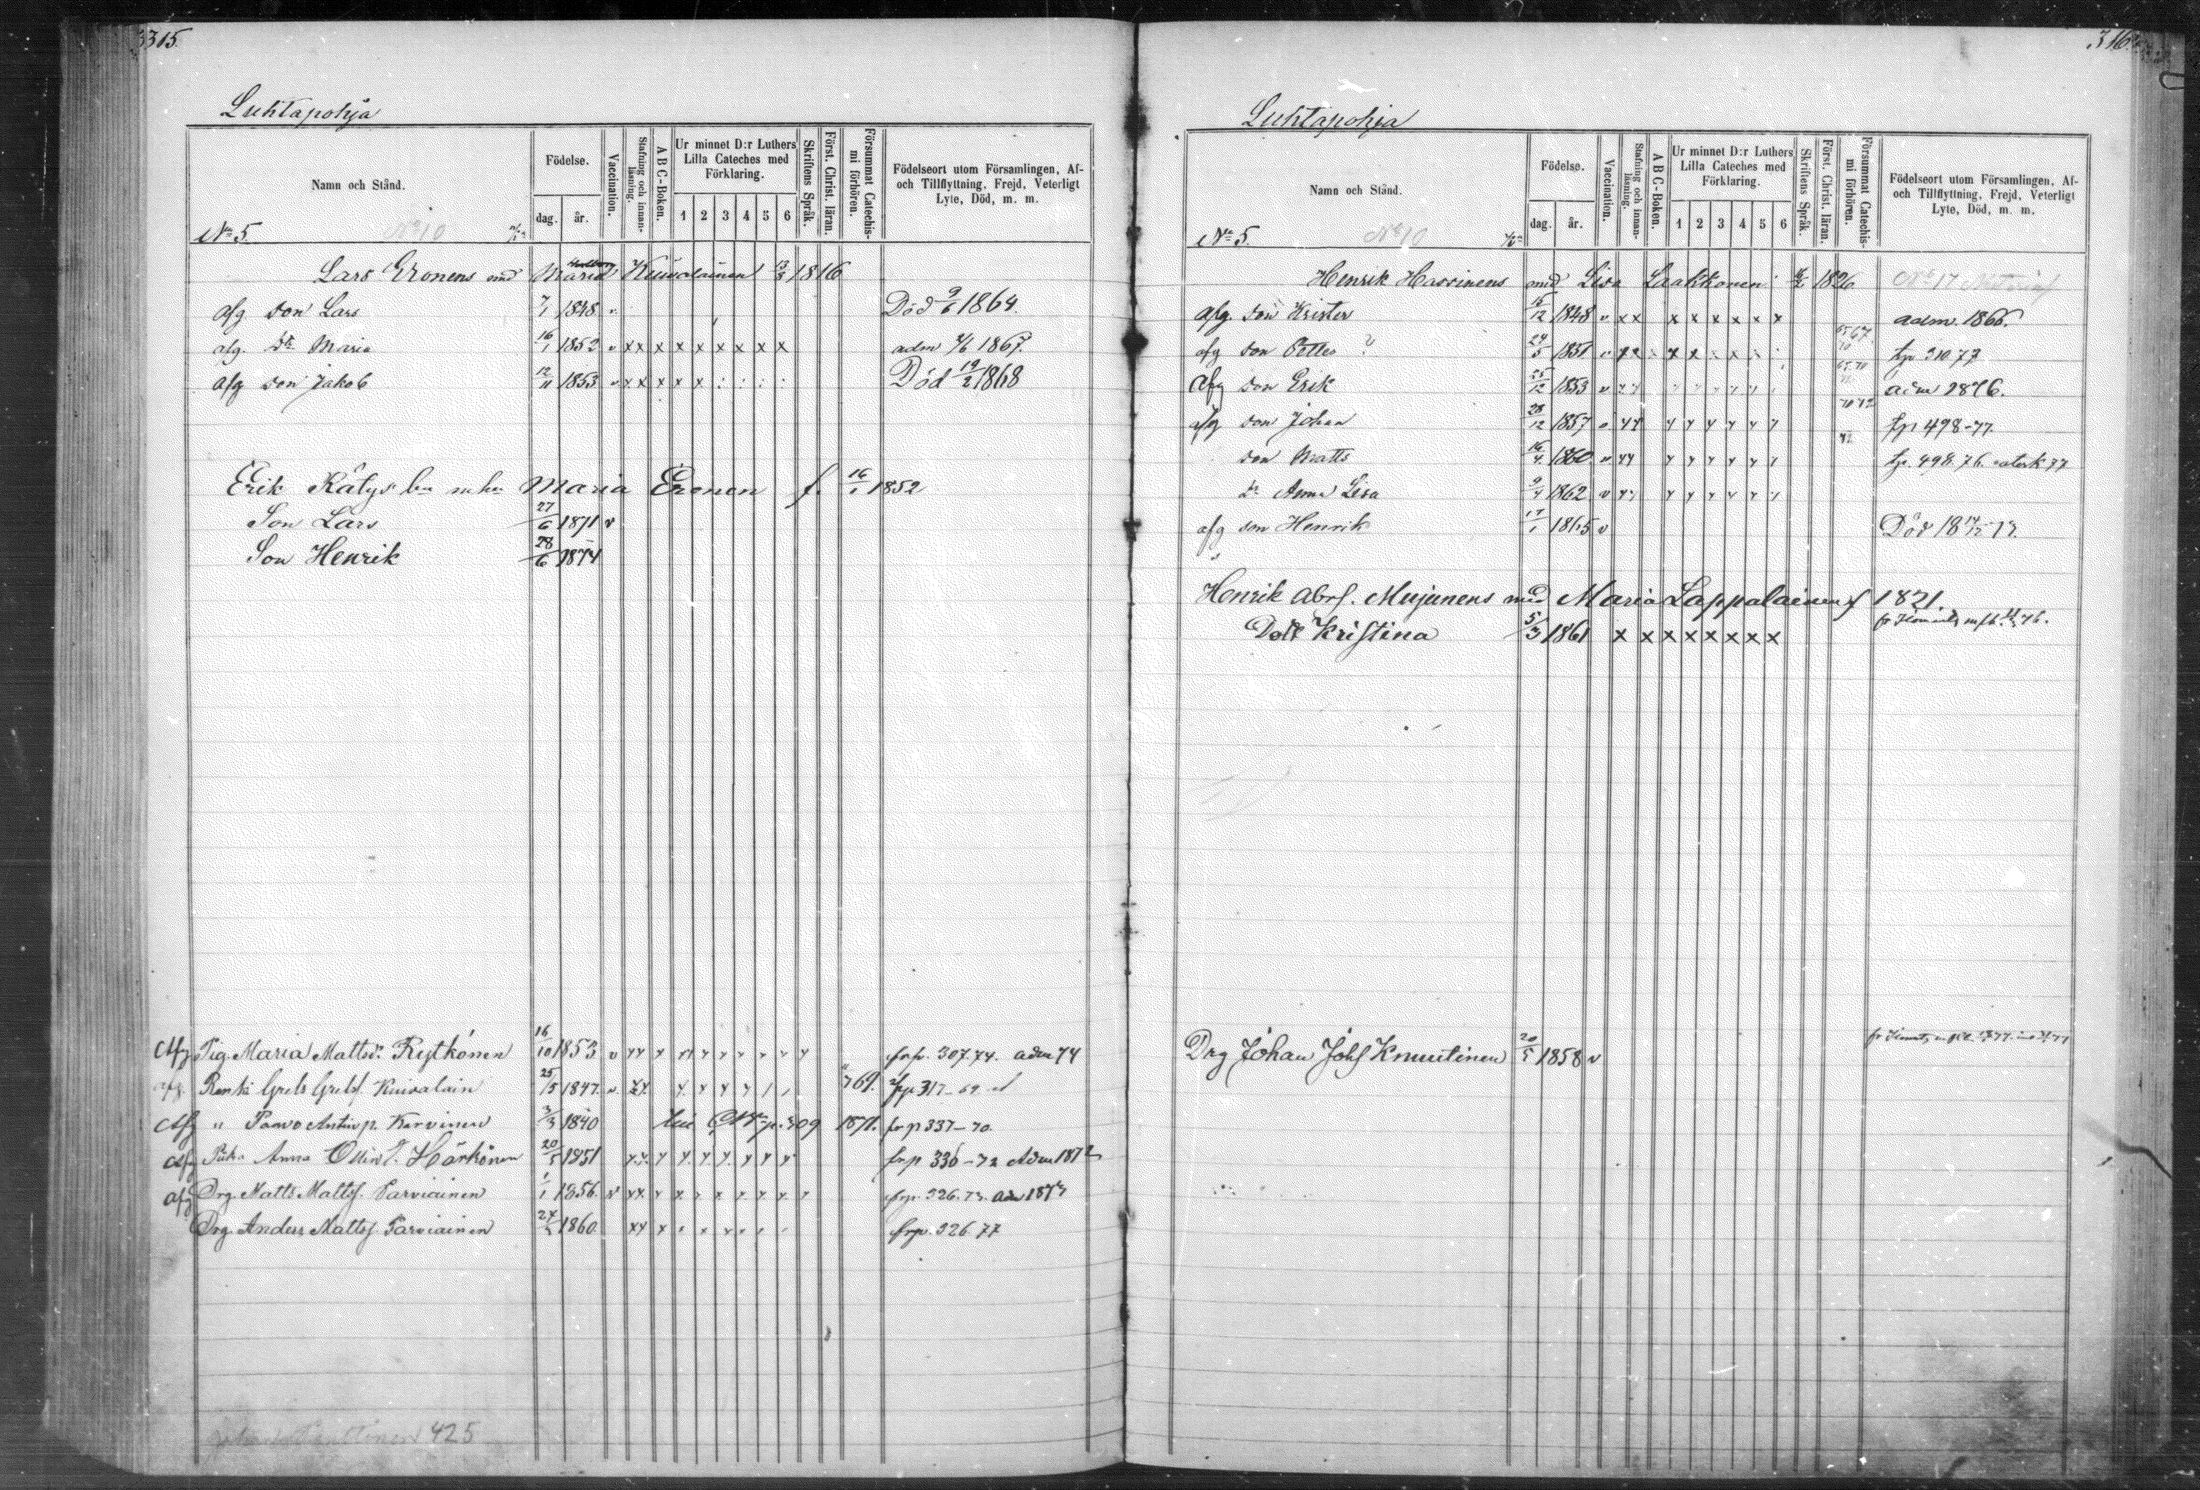 315.
Luhtapohja
Namn och Stånd.
Födelse.
dag.
år.
Vaccination.
Stafning och innan-läsning.
ABC-Boken.
Ur minnet D:r Luthers Lilla Cateches med Förklaring.
1 2 3 4 5 6
Skriftens Språk.
Först. Christ. läran.
Försummat Catechis-mi förhören.
Födelseort utom Församlingen, Af- och Tillflyttning, Frejd, Veterligt Lyte, Död, m. m.
No 5. No 10
Lars Eronens md Maria Kuivalainen 1816
afg son Lars 7/1 1848 v Död 9/6 1864.
afg. dr Maria 16/1 1852 v x x x x x x x x x adm
afg son Jakob 12/11 1853 v x x x x x Död 19/2 1868
Erik Maria Eronen f. 16/1 1852
Son Lars 27/6 1871 v
Son Henrik 28/6 1874
Afg Pig. Maria Mattsdr Rytkönen 16/10 1853 v frp. 307.74. adm 74
afg. Renki Grels Grelsf. Kuivalain 25/5 1847. v 769. frp 317-69
Afg " Paavo Anttip. Korvinen 3/3 1840 p. 309 1871. frp 337-70.
Afg Piika Anna Ollint. Härkönen 20/5 1851 frp 336-72 Adm 1872
afg Drg. Matts Mattsf. Parviainen 1/1 1856. v frp. 326.73. adm 1873
Drg. Anders Mattsf Parviainen 1860. frp. 326.77
425
316.
Luhtapohja
Namn och Stånd.
Födelse.
dag.
år.
Vaccination.
Stafning och innan-läsning.
ABC-Boken.
Ur minnet D:r Luthers Lilla Cateches med Förklaring.
1 2 3 4 5 6
Skriftens Språk.
Först. Christ. läran.
Försummat Catechis-mi förhören.
Födelseort utom Församlingen, Af- och Tillflyttning, Frejd, Veterligt Lyte, Död, m. m.
No 5. No 10
Henrik Hassinens md Lisa Laakkonen 1826 No 17
afg. son Krister 15/12 1848 v x x x x x x x x adm. 1866.
afg son Petter ? 24/5 1851 v tp 310 77
Afg son Erik 25/12 1853 v adm 1876.
afg son Johan 28/12 1857 v tp 498-77.
son Matts 16/4 1860 v tp. 498.76.
dr Anna Lisa 9/4 1862 v
afg son Henrik 17/1 1865 v Död
Henrik Abrf. Mujunens md Maria Lappalainen f 1821.
Dott Kristina 5/3 1861 x x x x x x x x
Drg Johan Johf Knuutinen 20/5 1858 v